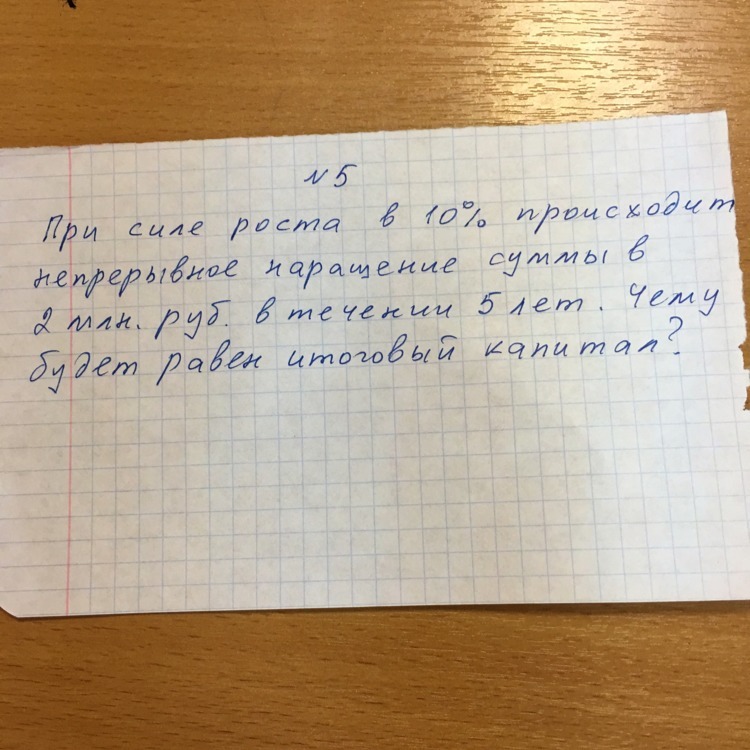 №5
При силе роста в 10% происходит
непрерывное наращение суммы в
2 млн. руб. в течении 5 лет. Чему
будет равен итоговый капитал?